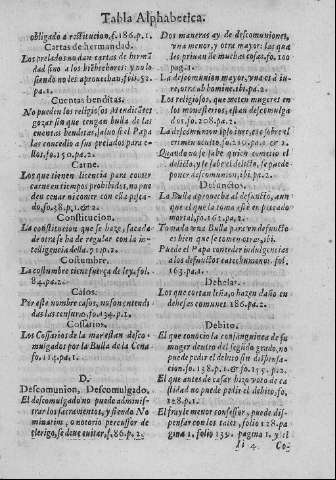 Tabla Alphabetica.
obligado a restitucion, f. 186. p. 1.
Cartas de hermandad.
Los prelados no dan cartas de herma
dad sino a los bienhechores: y no lo
siendo no les aprouechan. fol. 52.
pa. 1.
Cuentas benditas.
No pueden los religiosos Mendicātes
gozar sin que tengan bulla de las
cuentas benditas, saluo si el Papa
las concedio a sus prelados para e-
llos. fo. 150. pa. 2.
Carne.
Los que tienen licencia para comer
carne en tiempos prohibidos, no pue
den cenar ni comer con ella pesca-
do. fo. 38. p. 1. & 2.
Constitucion.
La constitucion que se haze, sacada
de otra se ha de regular con la in-
telligencia della. 91. p. 2.
Costumbre.
La costumbre tiene fuerça de ley. fol.
84. pa. 2.
Casos.
Por este nombre casos, no son entendi
das las censuras. fo. 134. p. 1.
Cossarios.
Los Cossarios de la mar estan desco-
mulgados por la Bulla de la Cena
fo. 114. pa. 1.
D.
Descomunion, Descomulgado.
El descomulgado no puede adminis-
trar los sacramentos, y siendo No
minatim, o notorio percussor de
clerigo, se deue euitar, f. 86. p. 2.
Dos maneras ay de descomuniones,
vna menor, y otra mayor: las qua
les priuan de muchas cosas. fo. 200
pag. 1.
La descomunion mayor, vna es à iu-
re, otra ab homine. ibi. pa. 2.
Los religiosos, que meten mugeres en
los monesterios, estan descomulga
dos. fo. 208. pa. 2.
La descomunion ipso iure, es sobre el
crimen oculto. fo. 210. pa. 1. & 2.
Quando no se sabe quien cometio el
delicto, y se sabe el delicto, se puede
poner descomunion, ibi. pa. 2.
Defunctos.
La Bulla aprouecha al defuncto, aun
que el que la toma esté en peccado
mortal. fo. 162. pa. 2.
Tomada vna Bulla para vn defuncto
es bien que se tomen otras, ibi.
Puede el Papa conceder indulgencias
a los defunctos catechumenos. fol.
163. pa. 1.
Dehesa.
Los que cortan leña, o hazen daño en
dehesas comunes. 186. pa. 2.
Debito.
El que comete la consanguinea de su
muger dentro del segundo grado, no
puede pedir el debito sin dispensa-
cion. fo. 138. p. 1. & fo. 155. p. 2.
El que antes de casar hizo voto de ca
stidad no puede pedir el debito. fo.
128. p. 1.
El frayle menor confessor, puede dis-
pensar con los tales. folio 128. pa
gina 1. folio 139. pagina 1. y el
Ii 4
Co-